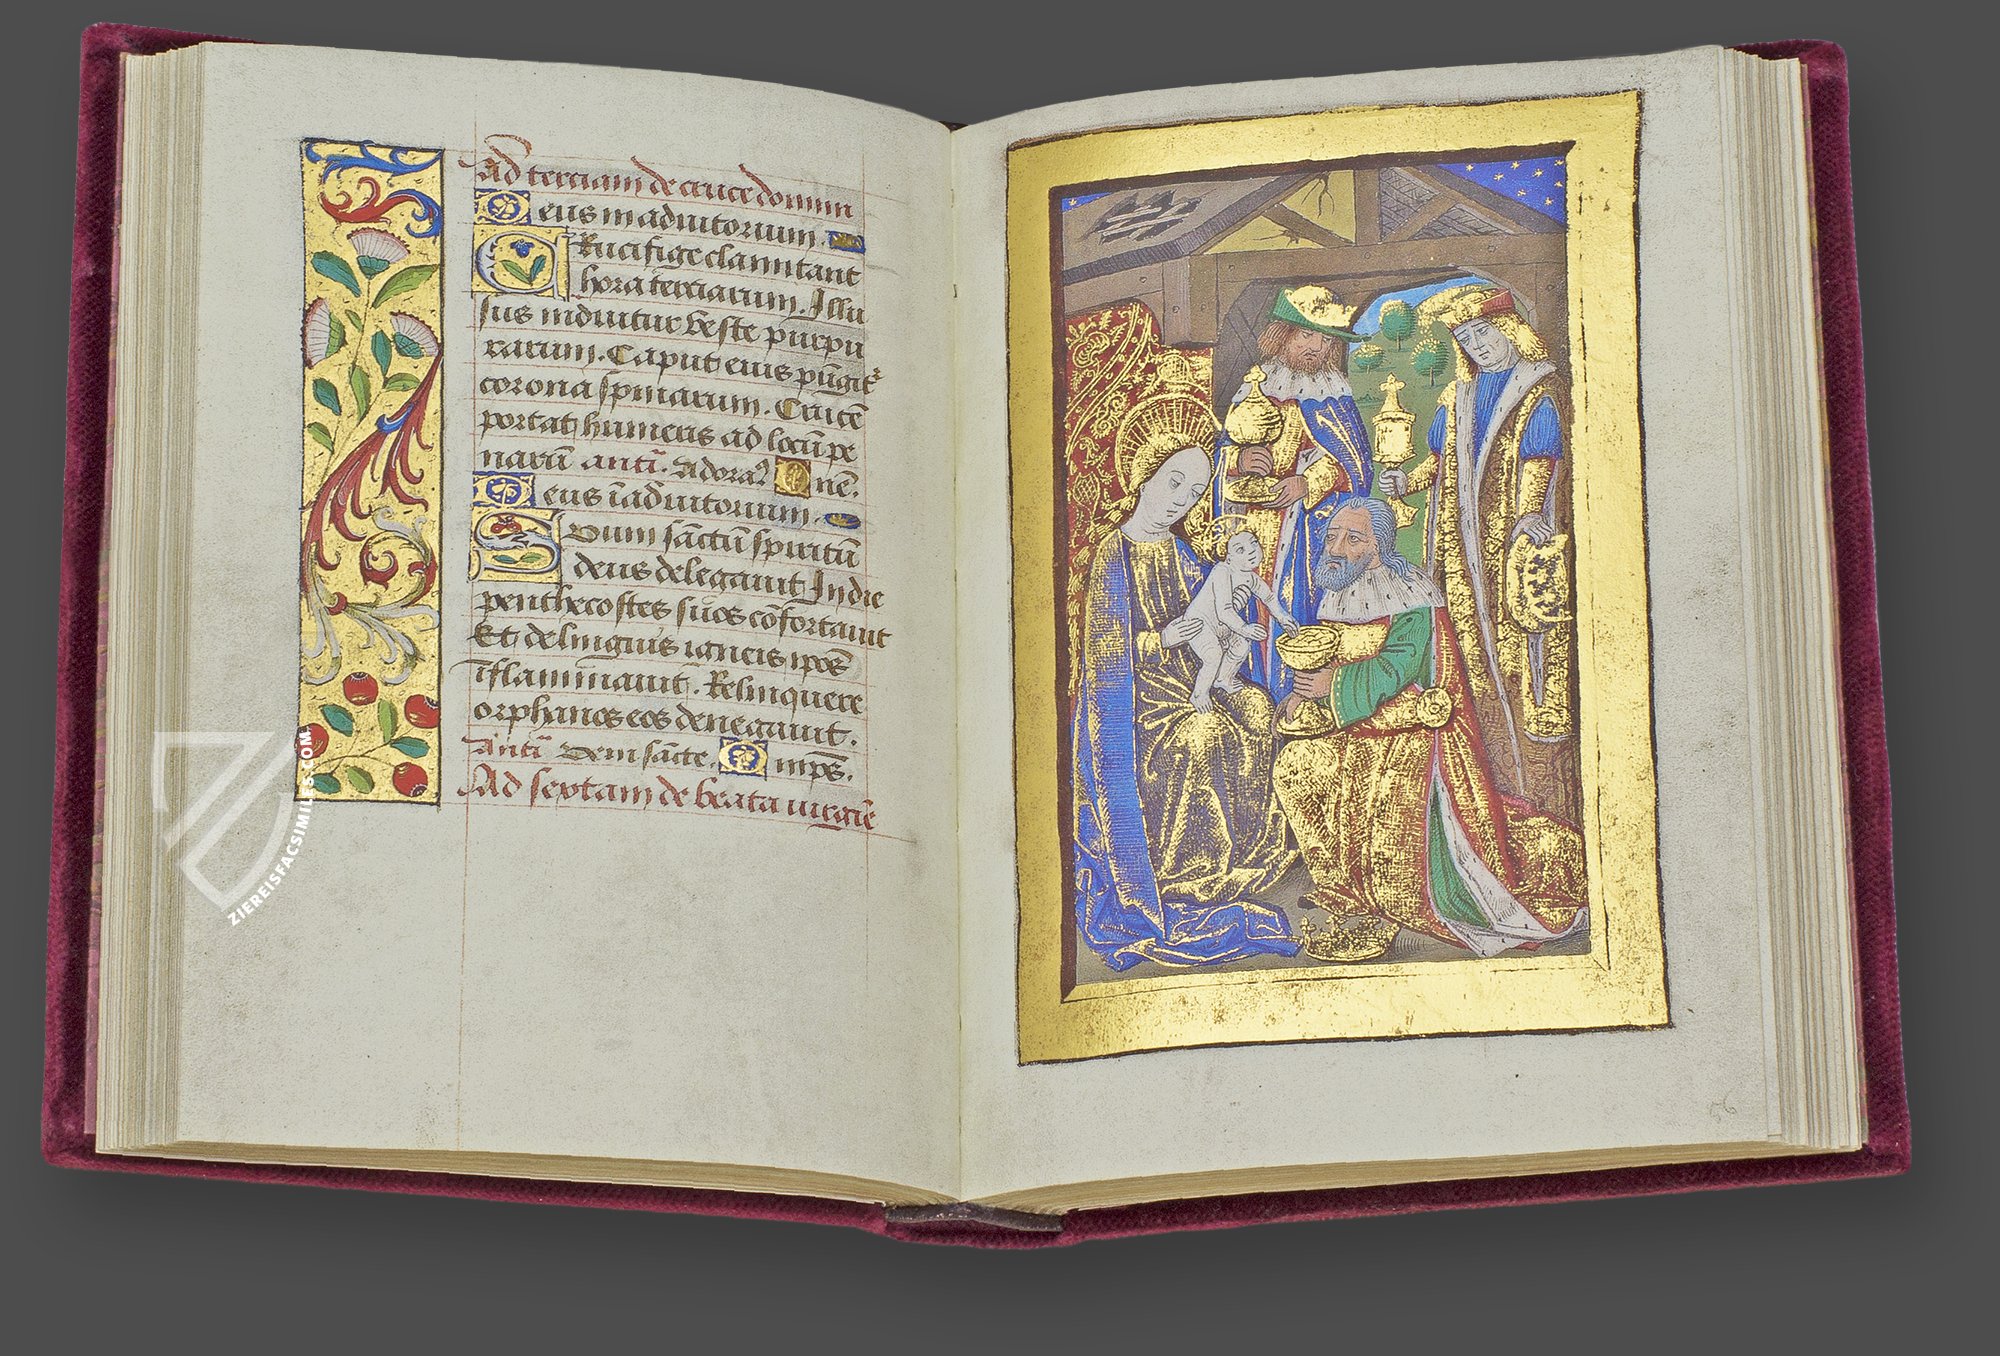 Ad terciam de cruce domini
Deus in adiutorium.
Crucifige clamitant
hora terciarum. Illu
sus induitur veste purpu
rarum. Caput eius pūgit᷑
corona spinarum. Crucē
portat humeris ad locū pe
narū antī. Adoram9 Onē.
Deus ī adiutorium.
Sūum sāctū spiritū
deus delegauit In die
penthecostes suos cōfortauit
Et de linguis igneis ipōs
īflammauit. Relinquere
orphanos eos denegauit.
antī Veni sācte. Omps̄.
Ad sextam de beata uirgīe
ZIEREISFACSIMILES.COM